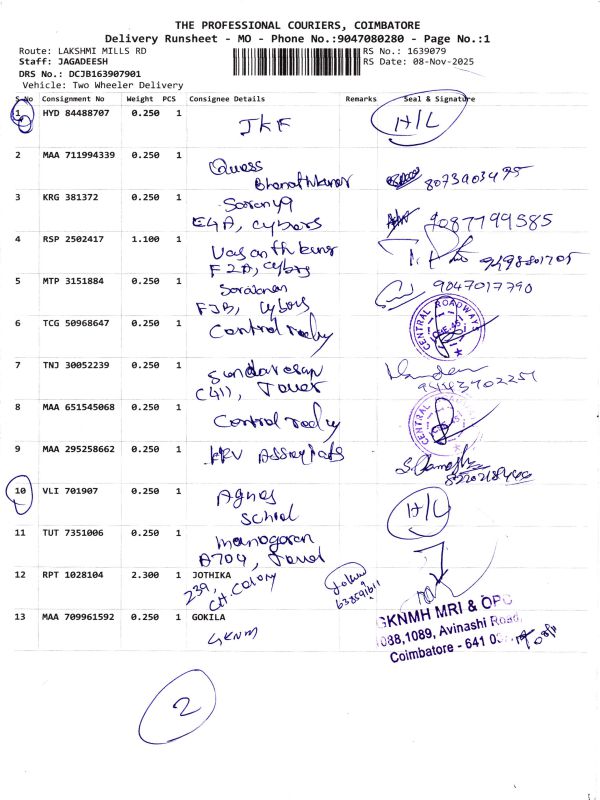 THE PROFESSIONAL COURIERS, COIMBATORE
Delivery Runsheet - MO - Phone No.:9047080280 - Page No.:1
Route: LAKSHMI MILLS RD
RS No.: 1639079
Staff: JAGADEESH
RS Date: 08-Nov-2025
DRS No.: DCJB163907901
Vehicle: Two Wheeler Delivery
S No Consignment No Weight PCS Consignee Details Remarks Seal & Signature
1 HYD 84488707 0.250 1 JKF H/L
2 MAA 711994339 0.250 1 Quess
Bharathkumar 8073903495
3 KRG 381372 0.250 1 Saranya
E4A, Cybers 9087799585
4 RSP 2502417 1.100 1 Vasanthkumar
F2B, Cybers 9498801705
5 MTP 3151884 0.250 1 Saravanan 9047017790
FJB, Cybers
6 TCG 50968647 0.250 1 Central CENTRAL ROADWAYS
7 TNJ 30052239 0.250 1 Sundaresan
C411, Tower
8 MAA 651545068 0.250 1 Central CENTRAL
9 MAA 295258662 0.250 1 KRV
10 VLI 701907 0.250 1 Agnes
School H/L
11 TUT 7351006 0.250 1 manogaran
A704,
12 RPT 1028104 2.300 1 JOTHIKA
239,
CH. Colony
13 MAA 709961592 0.250 1 GOKILA
GKNM
GKNMH MRI & OPD
1088,1089, Avinashi Road,
Coimbatore - 641
2